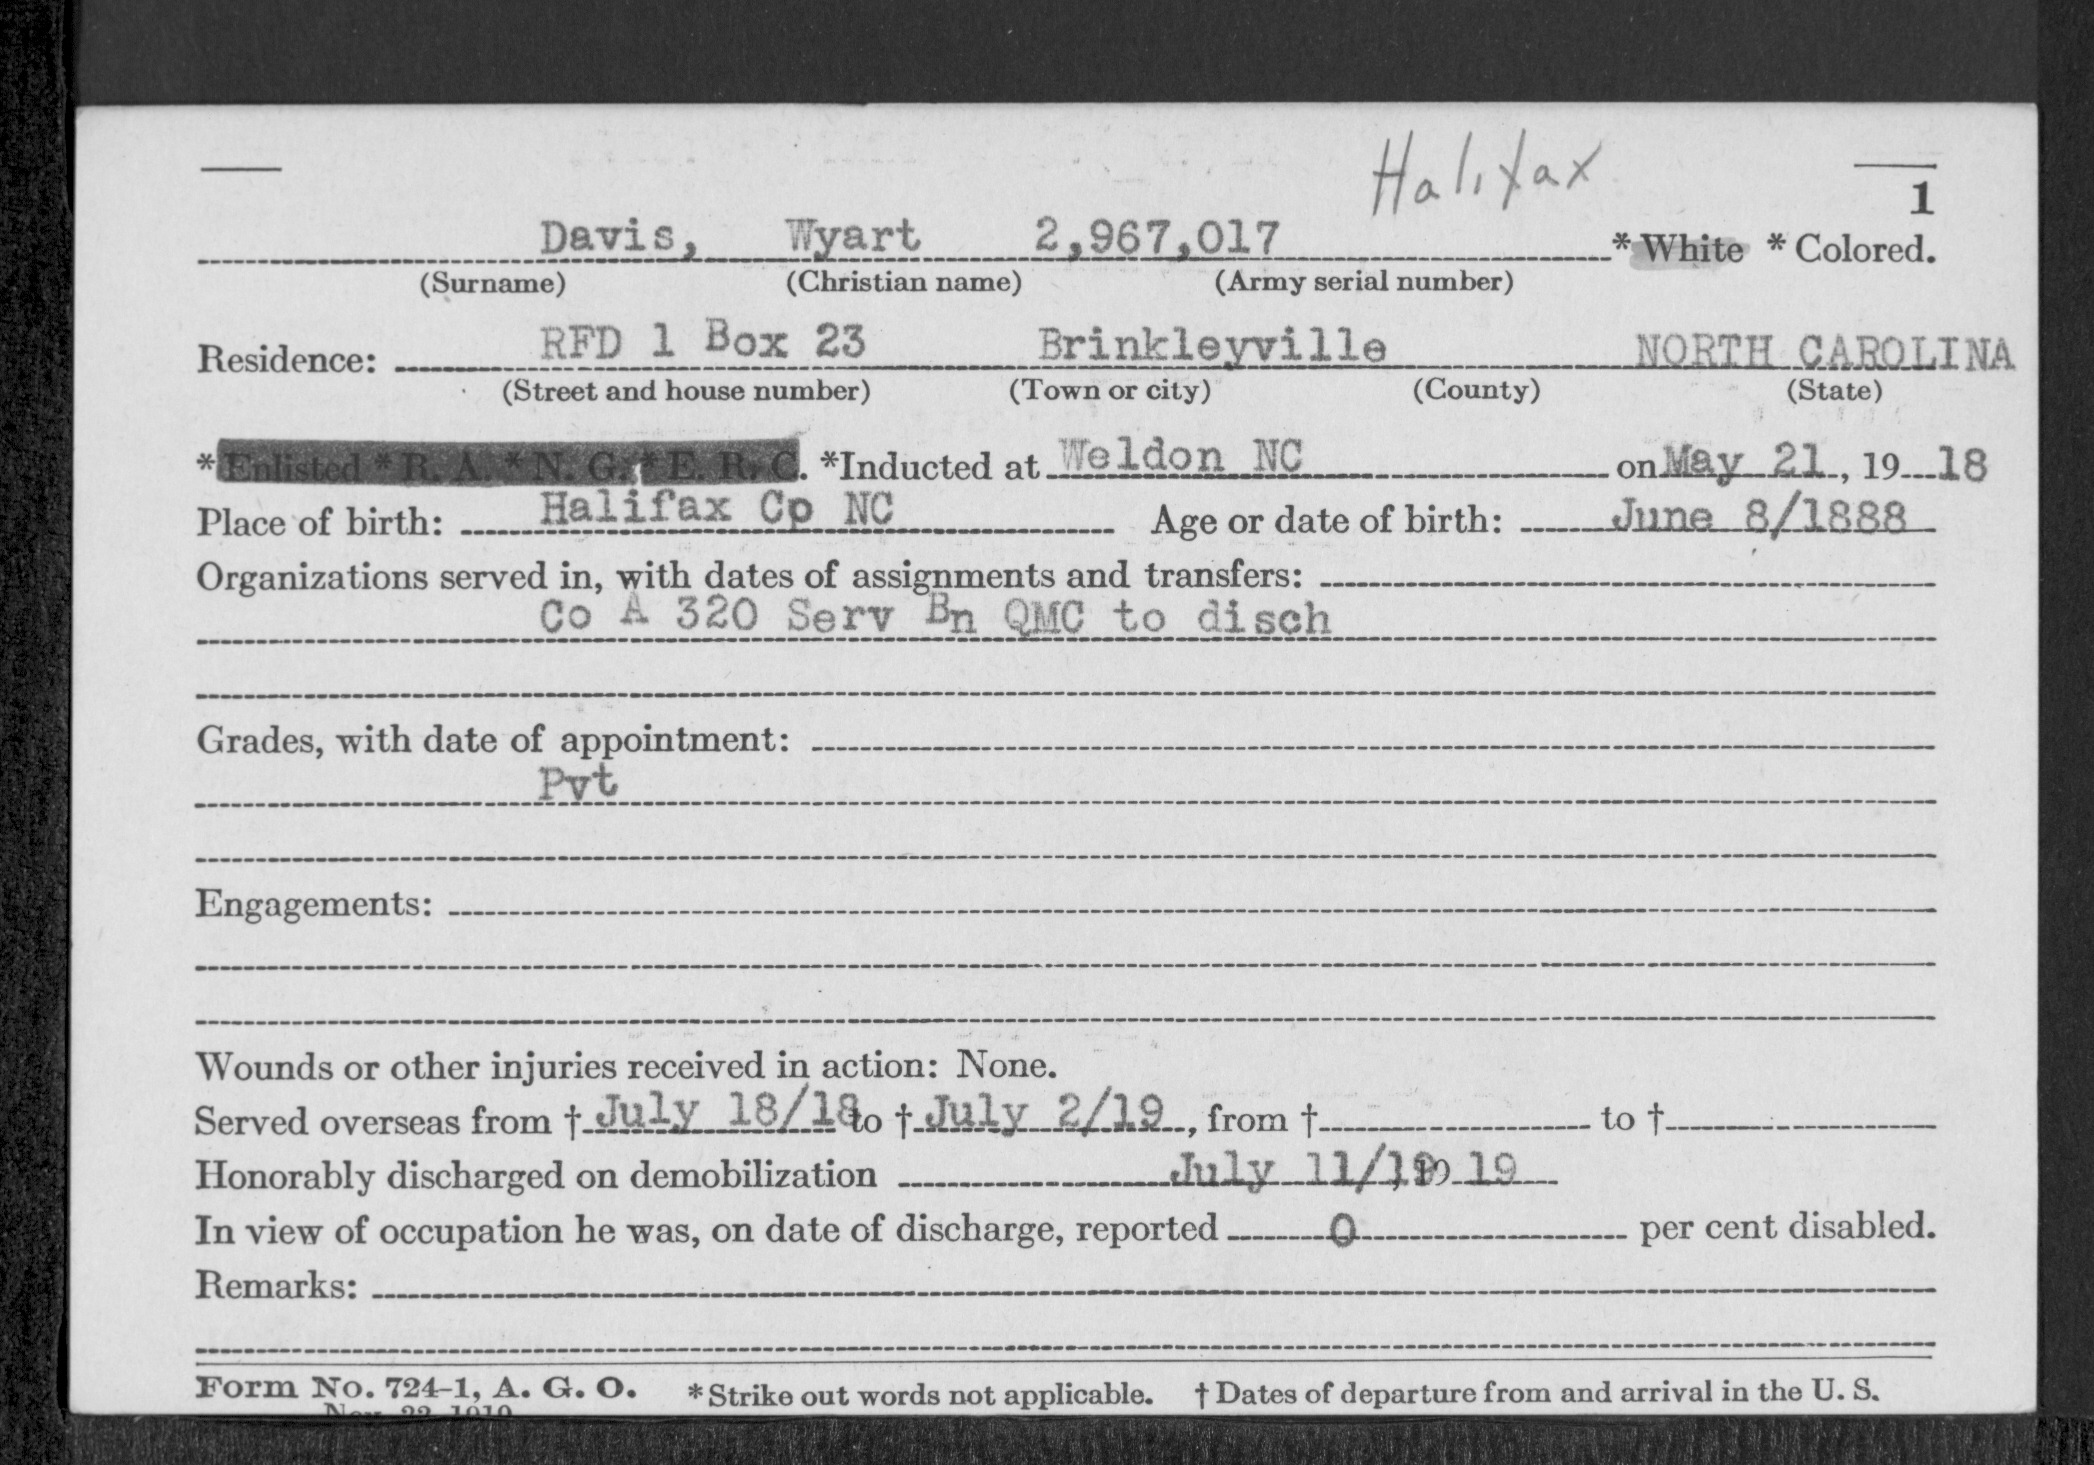 Halifax
1
Davis, Wyart 2,967,017 * White * Colored.
(Surname) (Christian name) (Army serial number)
RFD 1 Box 23 Brinkleyville NORTH CAROLINA
Residence:
(Street and house number) (Town or city) (County) (State)
*Enlisted *R. A. *N. G. *E. R. C. *Inducted at Weldon NC on May 21, 19 18
Place of birth: Halifax Cp NC Age or date of birth: June 8/1888
Organizations served in, with dates of assignments and transfers:
Co A 320 Serv Bn QMC to disch
Grades, with date of appointment:
Pvt
Engagements:
Wounds or other injuries received in action: None.
Served overseas from † July 18/18 to † July 2/19, from † to †
Honorably discharged on demobilization July 11/19, 19 19
In view of occupation he was, on date of discharge, reported 0 per cent disabled.
Remarks:
Form No. 724-1, A. G. O. *Strike out words not applicable. † Dates of departure from and arrival in the U. S.
Nov. 22, 1919